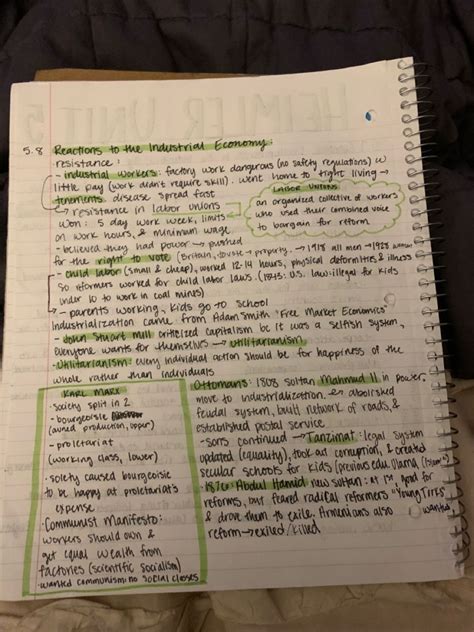 HEIMLER UNIT 5
5.8 Reactions to the Industrial Economy:
- resistance:
- industrial workers: factory work dangerous (no safety regulations) w
little pay (work didn't require skill). went home to tight living →
tenements. disease spread fast
↳ resistance in labor unions →
won: 5 day work week, limits
on work hours, & minimum wage
- believed they had power → pushed
for the right to vote (Britain, property → 1918 all men → 1928 women
LABOR UNIONS
an organized collective of workers
who used their combined voice
to bargain for reform.
- child labor (small & cheap), worked 12-14 hours, physical deformities & illness
so reformers worked for child labor laws. (1843: U.S. law: illegal for kids
under 10 to work in coal mines)
↳ - parents working, kids go to school
Industrialization came from Adam Smith "Free Market Economics"
- John Stuart Mill criticized capitalism bc it was a selfish system,
everyone wants for themselves → utilitarianism
- Utilitarianism: every individual action should be for happiness of the
whole rather than individuals
KARL MARX
- society split in 2
- bourgeoisie
(owned production, upper)
- proletariat
(working class, lower)
- soiety caused bourgeoisie
to be happy at proletariat's
expense
- Communist Manifesto:
workers should own &
get equal wealth from
factories (scientific socialism)
- wanted communism: no social classes
Ottomans: 1808 sultan Mahmud II in power,
move to industrialization. abolished
feudal system, built network of roads, &
established postal service
- sons continued → Tanzimat: legal system
updated (equality), took out corruption, & created
secular schools for kids (previous edu. Ulama, (Islam))
- 1876: Abdul Hamid new sultan: at 1st, good for
reforms, but feared radical reformers "Young Turks"
& drove them to exile. Armenians also wanted
reform → exiled/killed